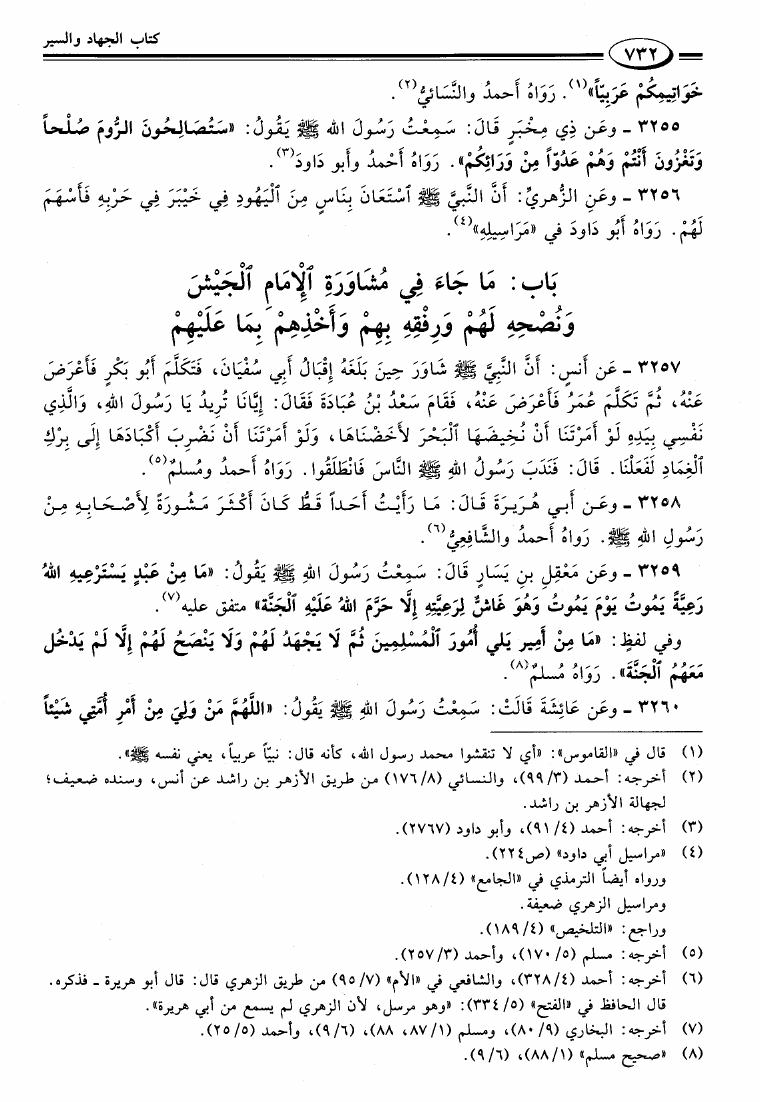 كتاب الجهاد والسير
٧٣٢
خَوَاتِيمِكُمْ عَرَبِيّاً»(١). رَوَاهُ أَحمدُ والنَّسَائيُّ(٢).
٣٢٥٥ - وعَن ذِي مِخْبَرٍ قَالَ: سَمِعْتُ رَسُولَ الله ﷺ يَقُولُ: «سَتُصَالِحُونَ الرُّومَ صُلْحاً
وَتَغْزُونَ أَنْتُمْ وَهُمْ عَدُوّاً مِنْ وَرَائِكُمْ». رَوَاهُ أَحْمدُ وأبو دَاودَ(٣).
٣٢٥٦ - وعَنِ الزُّهريِّ: أَنَّ النَّبيَّ ﷺ ٱسْتَعَانَ بِنَاسٍ مِنَ ٱلْيَهُودِ فِي خَيْبَرَ فِي حَرْبِهِ فَأَسْهَمَ
لَهُمْ. رَوَاهُ أَبُو دَاودَ في «مَرَاسِيلِهِ»(٤).
بَاب: مَا جَاءَ فِي مُشَاوَرَةِ ٱلْإِمَامِ ٱلْجَيْشَ
وَنُصْحِهِ لَهُمْ وَرِفْقِهِ بِهِمْ وَأَخْذِهِمْ بِمَا عَلَيْهِمْ
٣٢٥٧ - عَن أَنسٍ: أَنَّ النَّبيَّ ﷺ شَاوَرَ حِينَ بَلَغَهُ إِقْبَالُ أَبي سُفْيَانَ، فَتَكَلَّمَ أَبُو بَكْرٍ فَأَعْرَضَ
عَنْهُ، ثُمَّ تَكَلَّمَ عُمَرُ فَأَعْرَضَ عَنْهُ، فَقَامَ سَعْدُ بْنُ عُبَادَةَ فَقَالَ: إِيَّانَا تُرِيدُ يَا رَسُولَ اللهِ، وَالَّذِي
نَفْسِي بِيَدِهِ لَوْ أَمَرْتَنَا أَنْ نُخِيضَهَا ٱلْبَحْرَ لأَخَضْنَاهَا، وَلَوْ أَمَرْتَنَا أَنْ نَضْرِبَ أَكْبَادَهَا إِلَى بِرْكِ
ٱلْغِمَادِ لَفَعَلْنَا. قَالَ: فَنَدَبَ رَسُولُ اللهِ ﷺ النَّاسَ فَانْطَلَقُوا. رَوَاهُ أَحمدُ ومُسلمٌ(٥).
٣٢٥٨ - وعَن أَبي هُرَيرَةَ قَالَ: مَا رَأَيْتُ أَحَداً قَطُّ كَانَ أَكْثَرَ مَشُورَةً لأَصْحَابِهِ مِنْ
رَسُولِ اللهِ ﷺ. رَوَاهُ أَحمدُ والشَّافِعِيُّ(٦).
٣٢٥٩ - وعَن مَعْقِلِ بنِ يَسَارٍ قَالَ: سَمِعْتُ رَسُولَ اللهِ ﷺ يَقُولُ: «مَا مِنْ عَبْدٍ يَسْتَرْعِيهِ اللهُ
رَعِيَّةً يَمُوتُ يَوْمَ يَمُوتُ وَهُوَ غَاشٌّ لِرَعِيَّتِهِ إِلَّا حَرَّمَ اللهُ عَلَيْهِ ٱلْجَنَّةَ» متفق عليه(٧).
وفي لفظٍ: «مَا مِنْ أَمِيرٍ يَلي أُمُورَ ٱلْمُسْلِمِينَ ثُمَّ لَا يَجْهَدُ لَهُمْ وَلَا يَنْصَحُ لَهُمْ إِلَّا لَمْ يَدْخُلْ
مَعَهُمُ ٱلْجَنَّةَ». رَوَاهُ مُسلمٌ(٨).
٣٢٦٠ - وعَن عَائِشَةَ قَالَتْ: سَمِعْتُ رَسُولَ اللهِ ﷺ يَقُولُ: «اللَّهُمَّ مَنْ وَلِيَ مِنْ أَمْرِ أُمَّتِي شَيْئاً
(١) قال في «القاموس»: «أي لا تنقشوا محمد رسول الله، كأنه قال: نبيّاً عربياً، يعني نفسه ﷺ».
(٢) أخرجه: أحمد (٩٩/٣)، والنسائي (١٧٦/٨) من طريق الأزهر بن راشد عن أنس، وسنده ضعيف؛
لجهالة الأزهر بن راشد.
(٣) أخرجه: أحمد (٩١/٤)، وأبو داود (٢٧٦٧).
(٤) «مراسيل أبي داود» (ص٢٢٤).
ورواه أيضاً الترمذي في «الجامع» (١٢٨/٤).
ومراسيل الزهري ضعيفة.
وراجع: «التلخيص» (١٨٩/٤).
(٥) أخرجه: مسلم (١٧٠/٥)، وأحمد (٢٥٧/٣).
(٦) أخرجه: أحمد (٣٢٨/٤)، والشافعي في «الأم» (٩٥/٧) من طريق الزهري قال: قال أبو هريرة - فذكره.
قال الحافظ في «الفتح» (٣٣٤/٥): «وهو مرسل، لأن الزهري لم يسمع من أبي هريرة».
(٧) أخرجه: البخاري (٨٠/٩)، ومسلم (٨٧/١، ٨٨)، (٩/٦)، وأحمد (٢٥/٥).
(٨) «صحيح مسلم» (٨٨/١)، (٩/٦).